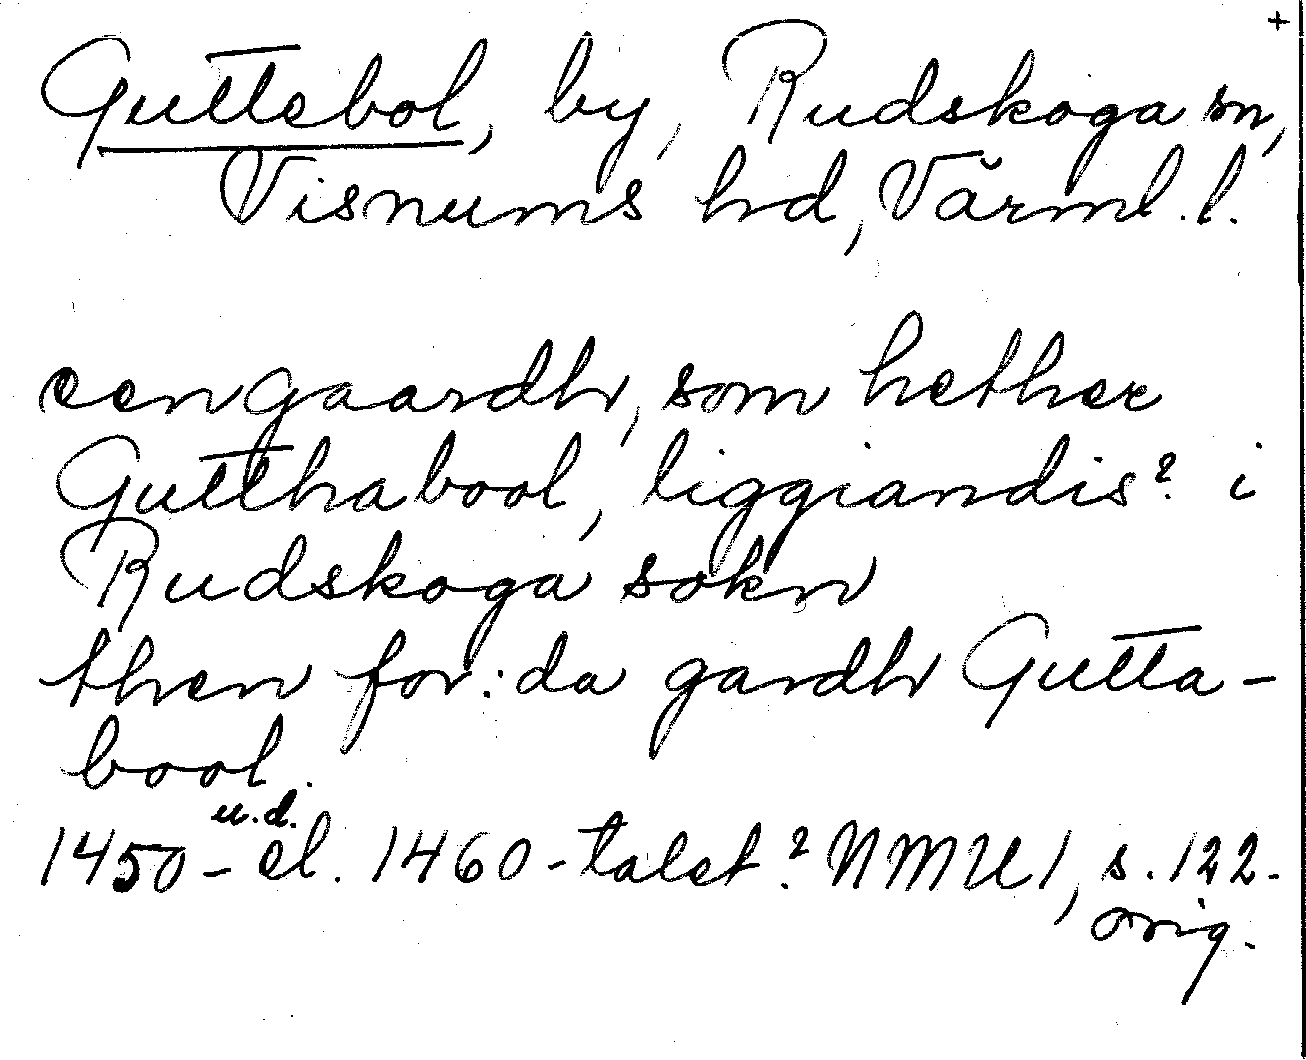 +
Guttebol, by, Rudskoga sn,
Visnums hd, Värml. l.
een gaardh, som hether
Gutthabool, liggiandis? i
Rudskoga sokn
then for:da gardh Gutta-
bool.
u.d.
1450- el. 1460-talet? NMU 1, s. 122.
orig.